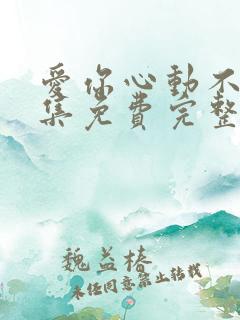 爱你心動不
集免費完整
魏益椿
未经同意禁止转载